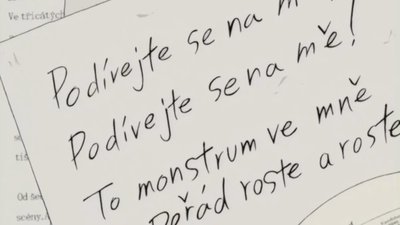 Ve třicátých
Podívejte se na mě!
Podívejte se na mě!
To monstrum ve mně
Pořád roste a roste
tiš
Od še
scény.